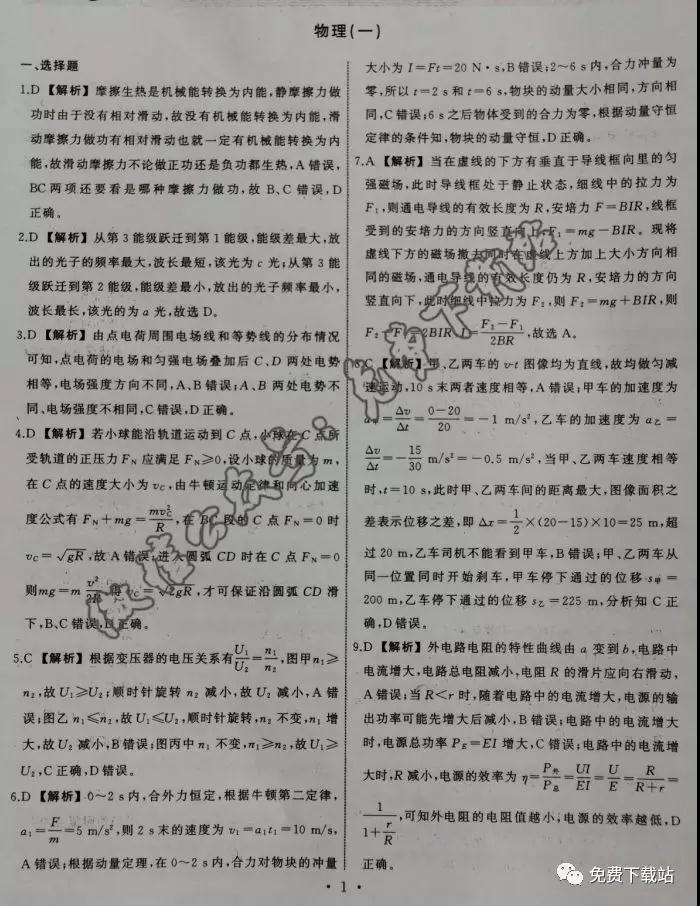 物理(一)
一、选择题
1.D 【解析】摩擦生热是机械能转换为内能,静摩擦力做
功时由于没有相对滑动,故没有机械能转换为内能,滑
动摩擦力做功有相对滑动也就一定有机械能转换为内
能,故滑动摩擦力不论做正功还是负功都生热,A错误,
BC两项还要看是哪种摩擦力做功,故B、C错误,D
正确。
2.D 【解析】从第3能级跃迁到第1能级,能级差最大,放
出的光子的频率最大,波长最短,该光为c光;从第3能
级跃迁到第2能级,能级差最小,放出的光子频率最小,
波长最长,该光的为a光,故选D。
3.D 【解析】由点电荷周围电场线和等势线的分布情况
可知,点电荷的电场和匀强电场叠加后C、D两处电势
相等,电场强度方向不同,A、B错误;A、B两处电势不
同、电场强度不相同,C错误,D正确。
4.D 【解析】若小球能沿轨道运动到C点,小球在C点所
受轨道的正压力FN应满足FN≥0,设小球的质量为m,
在C点的速度大小为vC,由牛顿运动定律和向心加速
度公式有FN+mg=mvC²/R,在BC段的C点FN=0时
vC=√gR,故A错误;进入圆弧CD时在C点FN=0
则mg=m v²/2R,得vC=√2gR,才可保证沿圆弧CD滑
下,B、C错误,D正确。
5.C 【解析】根据变压器的电压关系有U1/U2=n1/n2,图甲n1≥
n2,故U1≥U2;顺时针旋转n2减小,故U2减小,A错
误;图乙n1≤n2,故U1≤U2,顺时针旋转,n2不变,n1增
大,故U2减小,B错误;图丙中n1不变,n1≥n2,故U1≥
U2,C正确,D错误。
6.D 【解析】0~2 s内,合外力恒定,根据牛顿第二定律,
a1=F/m=5 m/s²,则2 s末的速度为v1=a1t1=10 m/s,
A错误;根据动量定理,在0~2 s内,合力对物块的冲量
大小为I=Ft=20 N·s,B错误;2~6 s内,合力冲量为
零,所以t=2 s和t=6 s,物块的动量大小相同,方向相
同,C错误;6 s之后物体受到的合力为零,根据动量守恒
定律的条件知,物块的动量守恒,D正确。
7.A 【解析】当在虚线的下方有垂直于导线框向里的匀
强磁场,此时导线框处于静止状态,细线中的拉力为
F1,则通电导线的有效长度为R,安培力F=BIR,线框
受到的安培力的方向竖直向上,F1=mg-BIR。现将
虚线下方的磁场撤去同时在虚线上方加上大小方向相
同的磁场,通电导线的有效长度仍为R,安培力的方向
竖直向下,此时细线中拉力为F2,则F2=mg+BIR,则
F2-F1=2BIR,I=F2-F1/2BR,故选A。
8.C 【解析】甲、乙两车的v-t图像均为直线,故均做匀减
速运动,10 s末两者速度相等,A错误;甲车的加速度为
a甲=Δv/Δt=0-20/20=-1 m/s²,乙车的加速度为a乙=
Δv/Δt=-15/30 m/s²=-0.5 m/s²,当甲、乙两车速度相等
时,t=10 s,此时甲、乙两车间的距离最大,图像面积之
差表示位移之差,即Δx=1/2×(20-15)×10=25 m,超
过20 m,乙车司机不能看到甲车,B错误;甲、乙两车从
同一位置同时开始刹车,甲车停下通过的位移s甲=
200 m,乙车停下通过的位移s乙=225 m,分析知C正
确,D错误。
9.D 【解析】外电路电阻的特性曲线由a变到b,电路中
电流增大,电路总电阻减小,电阻R的滑片应向右滑动,
A错误;当R<r时,随着电路中的电流增大,电源的输
出功率可能先增大后减小,B错误;电路中的电流增大
时,电源总功率PE=EI增大,C错误;电路中的电流增
大时,R减小,电源的效率为η=P外/P总=UI/EI=U/E=R/R+r=
1/1+r/R,可知外电阻的电阻值越小,电源的效率越低,D
正确。
·1·
免费下载站